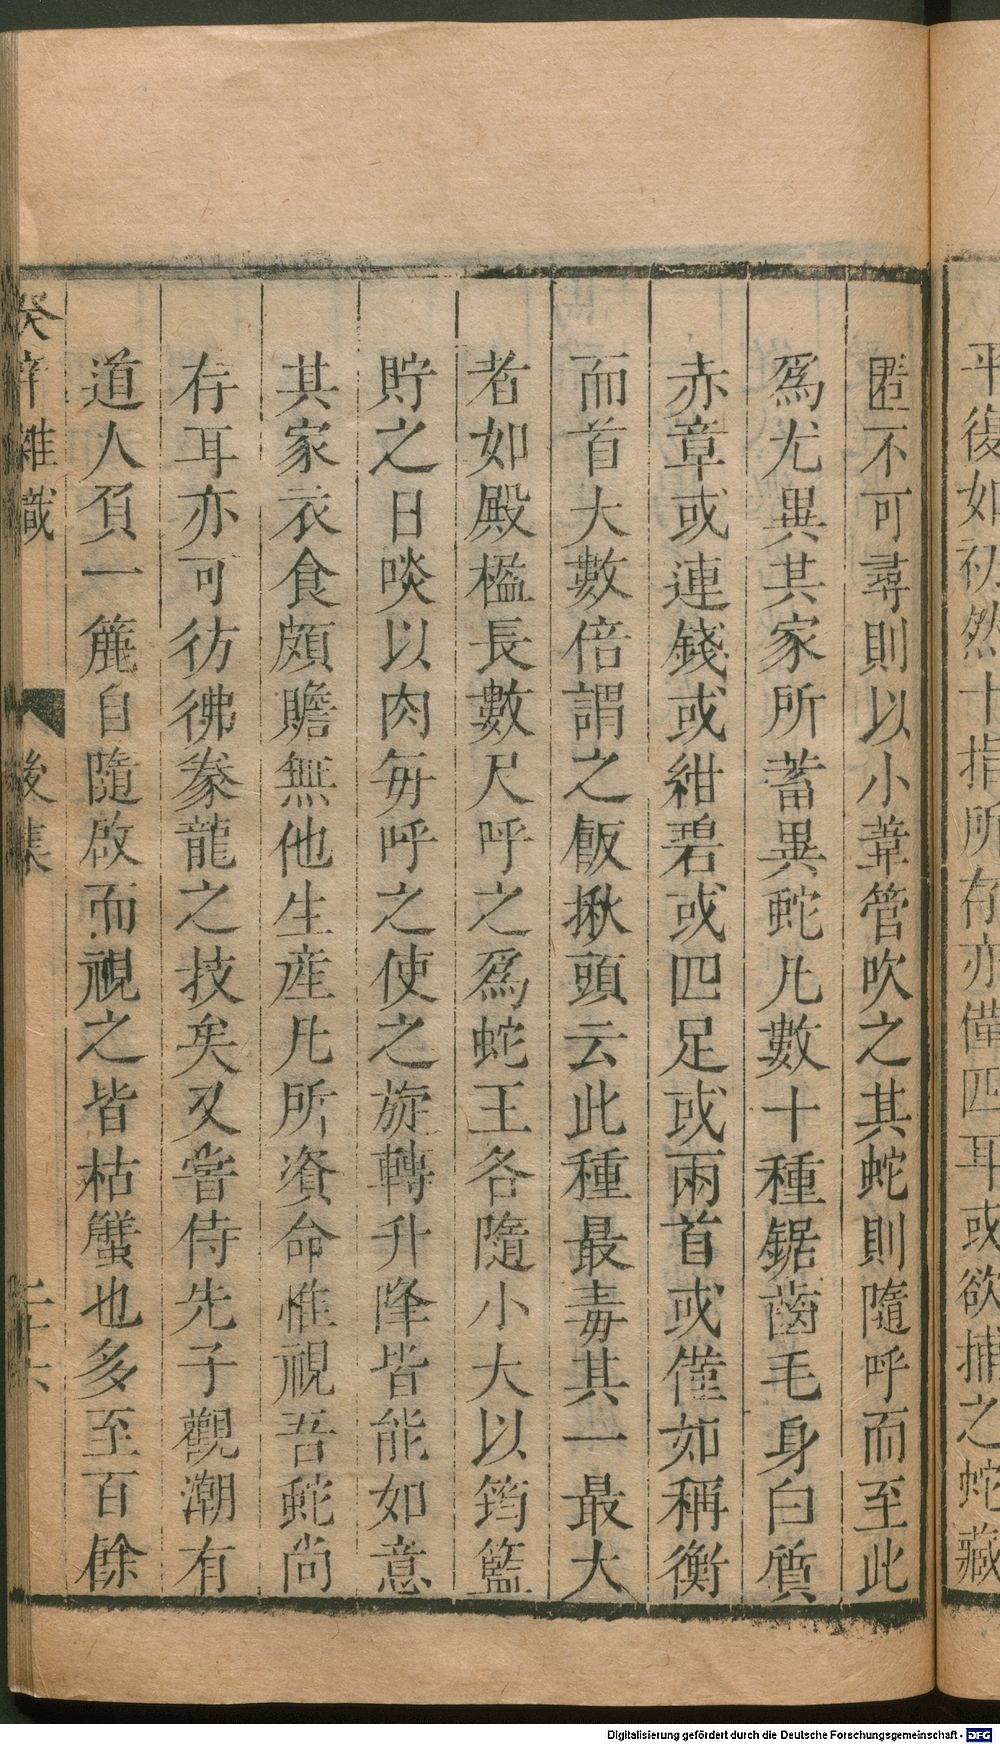 平復如初然十指所存亦僅四耳或欲捕之蛇藏
匿不可尋則以小葦管吹之其蛇則隨呼而至此
爲尤異其家所蓄異蛇凡數十種鋸齒毛身白質
赤章或連錢或紺碧或四足或兩首或僅如稱衡
而首大數倍謂之飯揪頭云此種最毒其一最大
者如殿楹長數尺呼之爲蛇王各隨小大以筠籃
貯之日啖以肉每呼之使之旋轉升降皆能如意
其家衣食頗贍無他生産凡所資命惟視吾蛇尚
存耳亦可彷彿豢龍之技矣又嘗侍先子觀潮有
道人負一簏自隨啟而視之皆枯蟹也多至百餘
癸辛雜識 後集 二十六
Digitalisierung gefördert durch die Deutsche Forschungsgemeinschaft - DFG